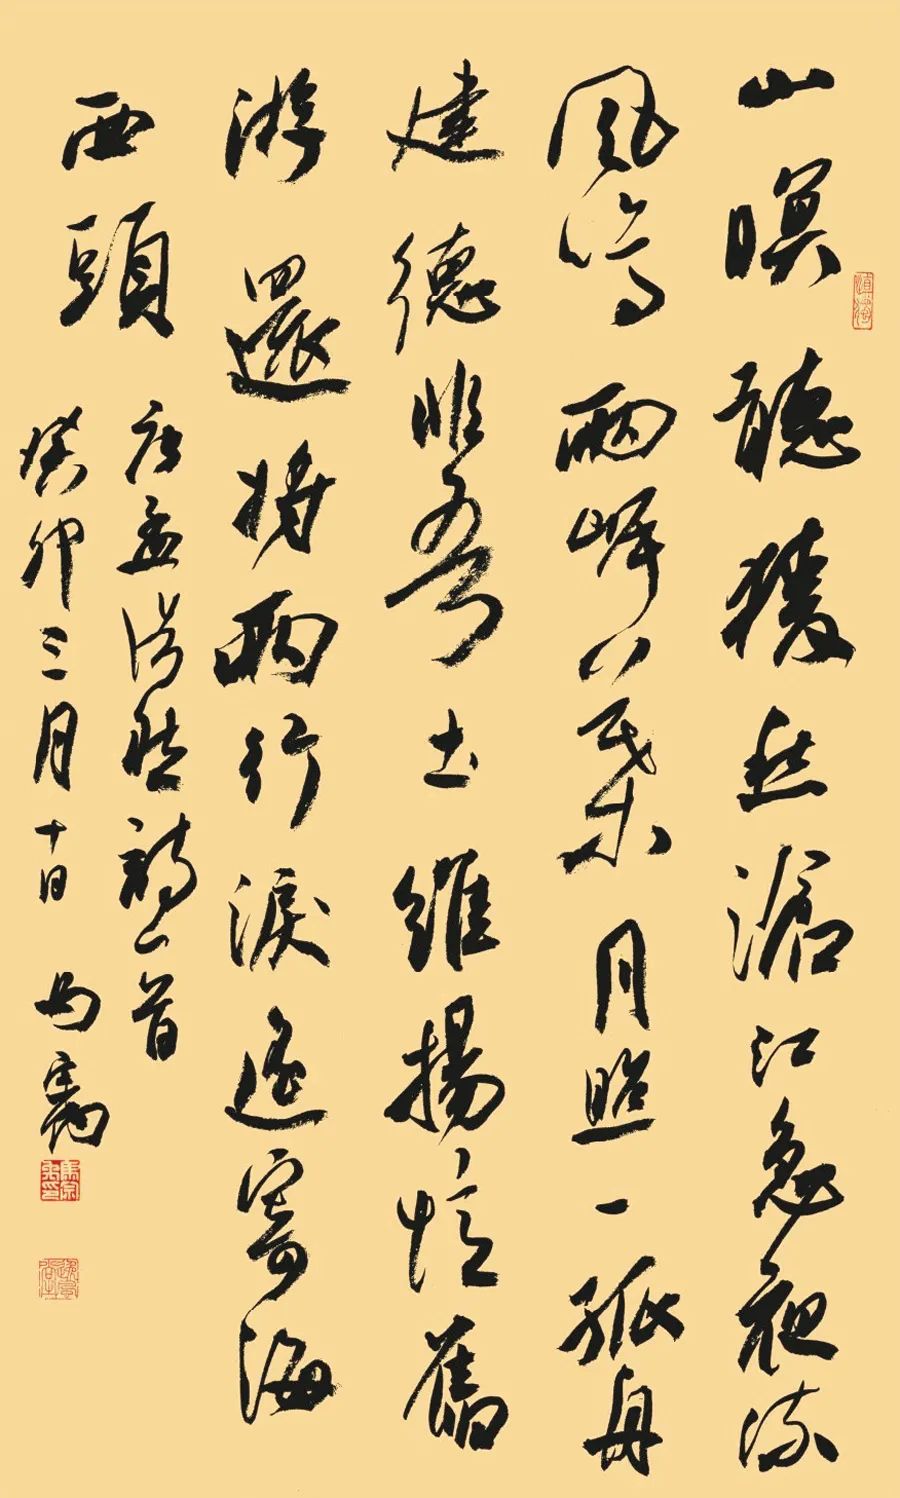 山暝聽猿愁滄江急夜流
風鳴兩岸葉月照一孤舟
建德非吾土維揚憶舊
游還將兩行淚遥寄海
西頭
唐孟浩然詩一首
癸卯三月十日